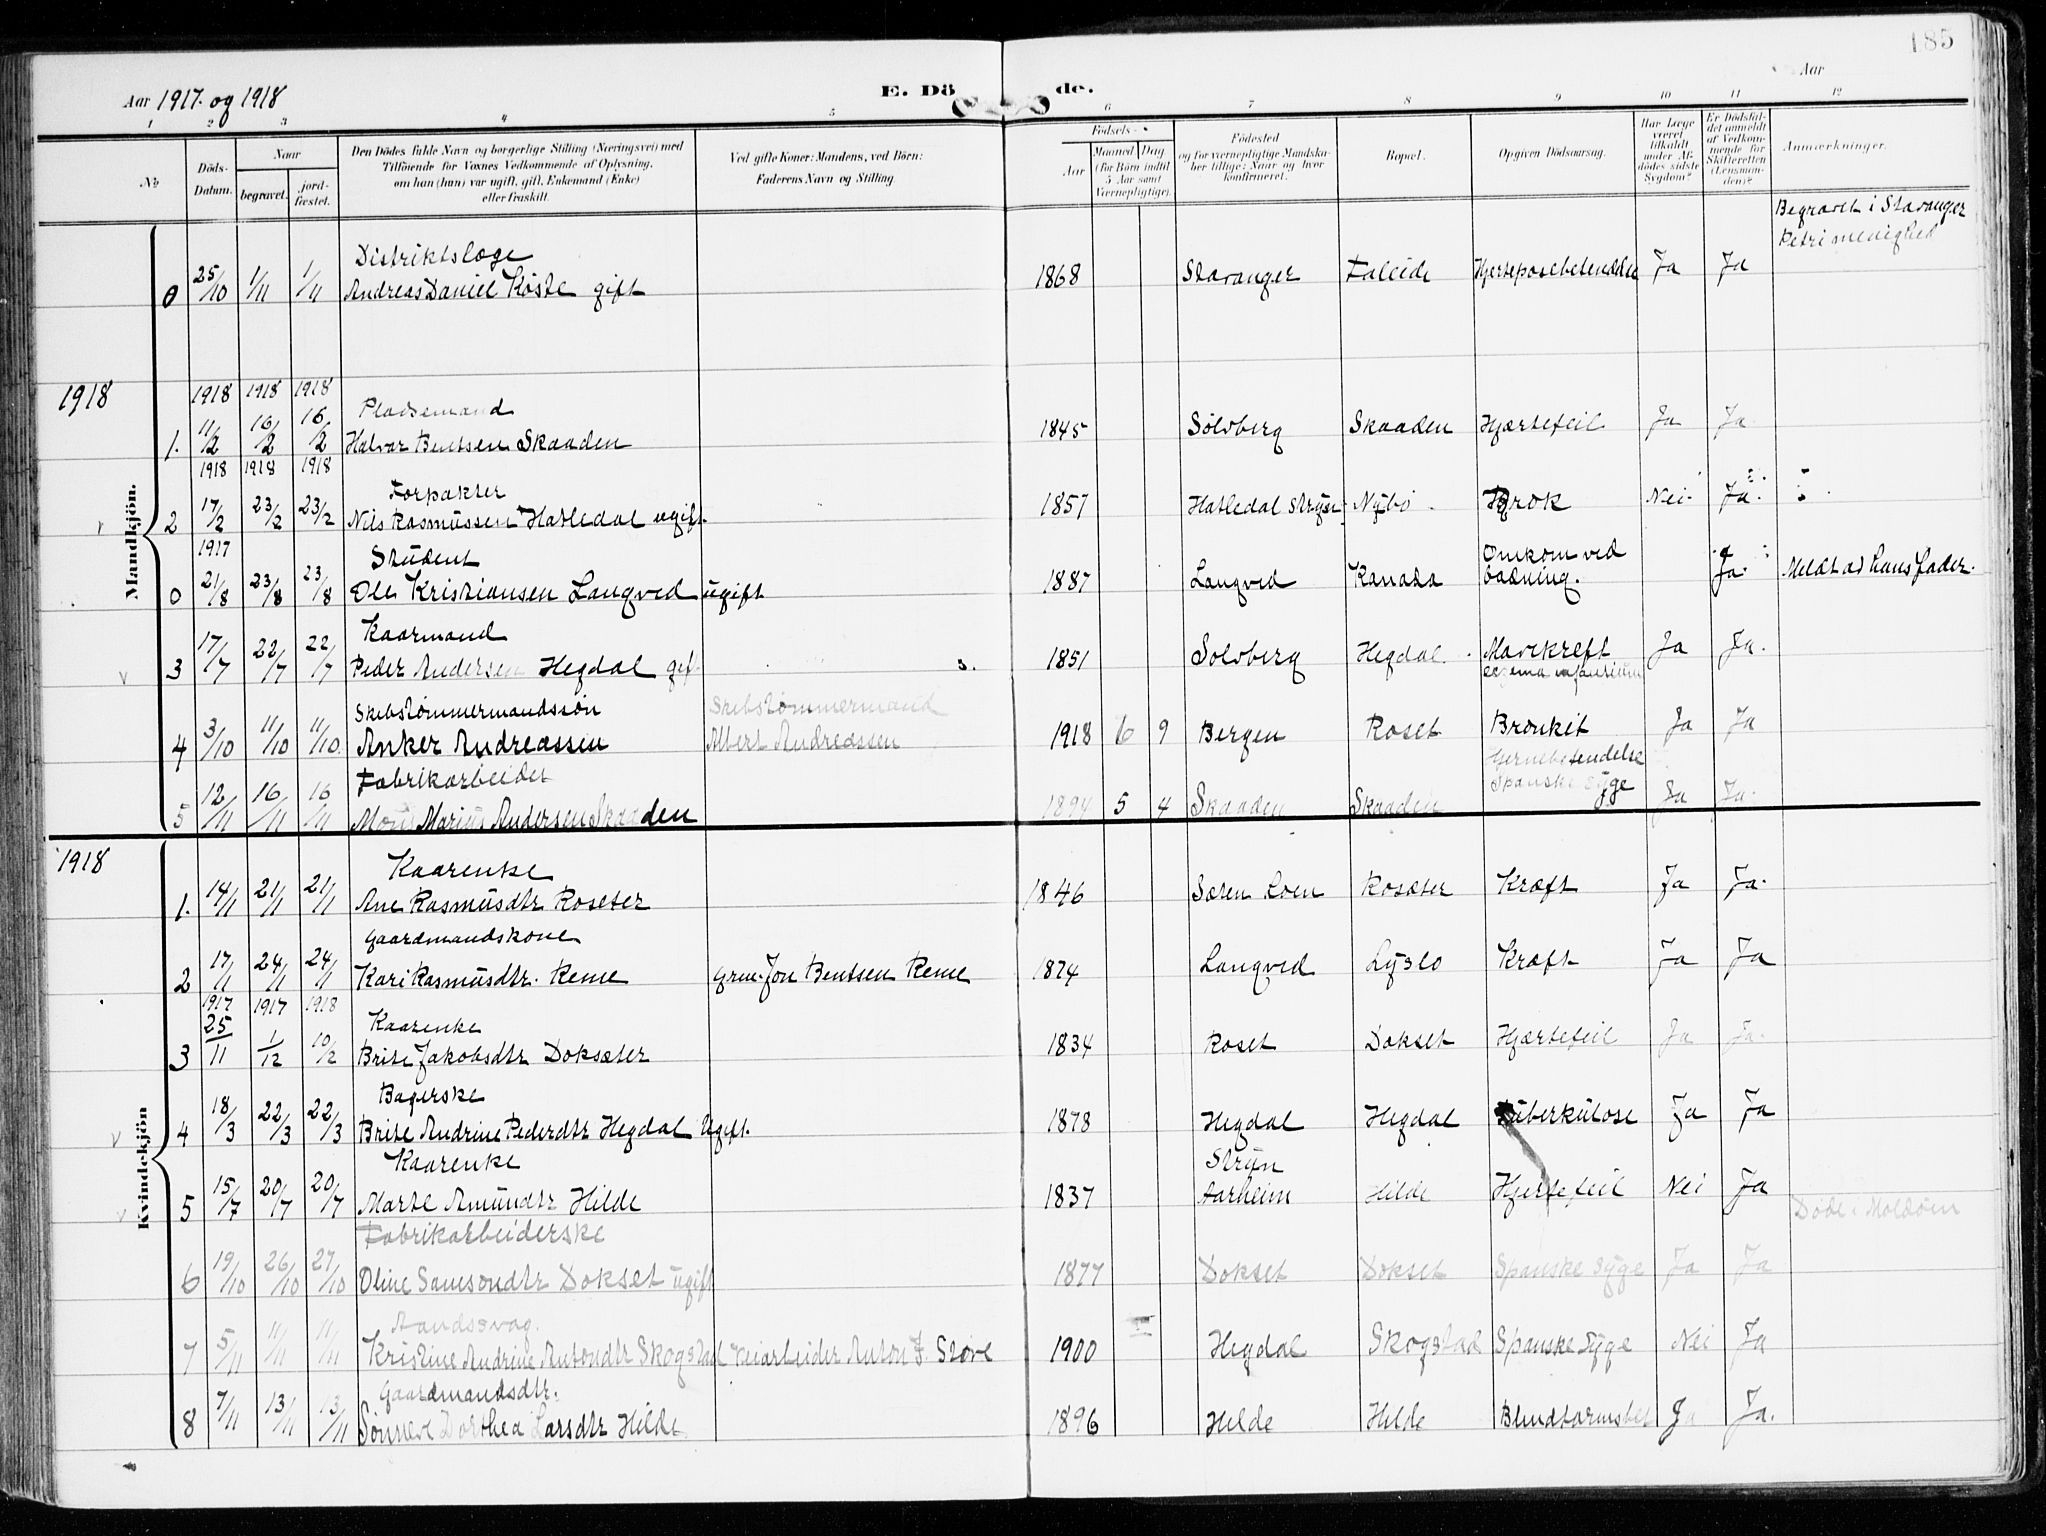 185
Aar 1917. og 1918
E. Dö de.
Aar
1 2 3 4 5 6 7 8 9 10 11 12
No
Döds-Datum.
Naar
begravet.
jord-fæstet.
Den Dödes fulde Navn og borgerlige Stilling (Næringsvei) med
Tilföiende for Voxnes Vedkommende af Oplysning,
om han (hun) var ugift, gift, Enkemand (Enke)
eller fraskilt.
Ved gifte Koner: Mandens, ved Börn:
Faderens Navn og Stilling
Födsels-
Aar
Maaned Dag
(for Börn indtil
5 Aar samt
Værnepligtige).
Födested
og for værnepligtige Mandska-
ber tillige: Naar og hvor
konfirmeret.
Bopæl.
Opgiven Dödsaarsag.
Har Læge
været
tilkaldt
under Af-
dödes sidste
Sygdom?
Er Dödsfal-
det anmeldt
af Vedkom-
mende for
Skifteretten
(Lensman-
den)?
Anmærkninger.
Mandkjön.
Begravet i Stavanger
Petri menighed
Distriktslæge
0 25/10 1/11 1/11 Andreas Daniel Koste gift 1868 Stavanger Faleide Hjerteposebetendelse Ja Ja
1918
1918 1918 1918
Pladsemand
1. 11/2 16/2 16/2 Halvar Bentsen Skaaden 1845 Solvberg Skaaden Hjærtefeil Ja Ja
1918 1918 1918
Forpakter
2 17/2 23/2 23/2 Nils Rasmussen Hatledal ugift. 1857 Hatledal Stryn Nybø Brok Nei Ja
1917
Student
Omkom ved
0 21/8 23/8 23/8 Ole Kristiansen Langved ugift 1887 Langved Kanada badning. Ja. Meldt av hans fader.
Kaarmand
3 17/7 22/7 22/7 Peder Andersen Hegdal gift 1851 Solvberg Hegdal Mavekreft Ja Ja.
Skibstømmermandssøn Skibstømmermand
4 3/10 11/10 11/10 Anker Andreassen Albert Andreassen 1918 6 9 Bergen Roset Bronkit Ja Ja
Hjernebetendelse
Fabrikarbeider
Spanske syge
5 12/11 16/11 16/11 Marius Andersen Skaaden 1894 5 4 Skaaden Skaaden Ja Ja
1918
Kvindekjön
Kaarenke
1. 14/1 21/1 21/1 Ane Rasmusdtr Roseter 1846 Sæten Loen Rosæter Kræft Ja Ja.
Gaardmandskone
2 17/1 24/1 24/1 Kari Rasmusdtr. Reme Grm. Jon Bentsen Reme 1874 Langved Lyslo Kræft Ja Ja
1917 1917 1918
Kaarenke
3 25/11 1/12 10/2 Brite Jakobsdtr Doksæter 1834 Roset Dokset Hjærtefeil Ja Ja.
Bagerske
4 18/3 22/3 22/3 Brite Andrine Pedersdtr Hegdal Ugift. 1878 Hegdal Hegdal Tuberkulose Ja Ja
Kaarenke
Stryn
5 15/7 20/7 20/7 Marte Amundtr Hilde 1837 Aarheim Hilde Hjertefeil Nei Ja
Fabrikarbeiderske
Døde i Moldøen
6 19/10 26/10 27/10 Oline Samsondtr Dokset ugift 1877 Dokset Dokset Spanske syge Ja Ja
Aandssvag.
7 5/11 11/11 11/11 Kristine Andrine Antondtr Skogstad Veiarbeider Anton J. Støve 1900 Hegdal Skogstad Spanske syge Nei Ja
Gaardmandsdtr.
8 7/11 13/11 13/11 Sønneve Dorthea Larsdtr Hilde 1896 Hilde Hilde Blindtarmsbet Ja Ja.